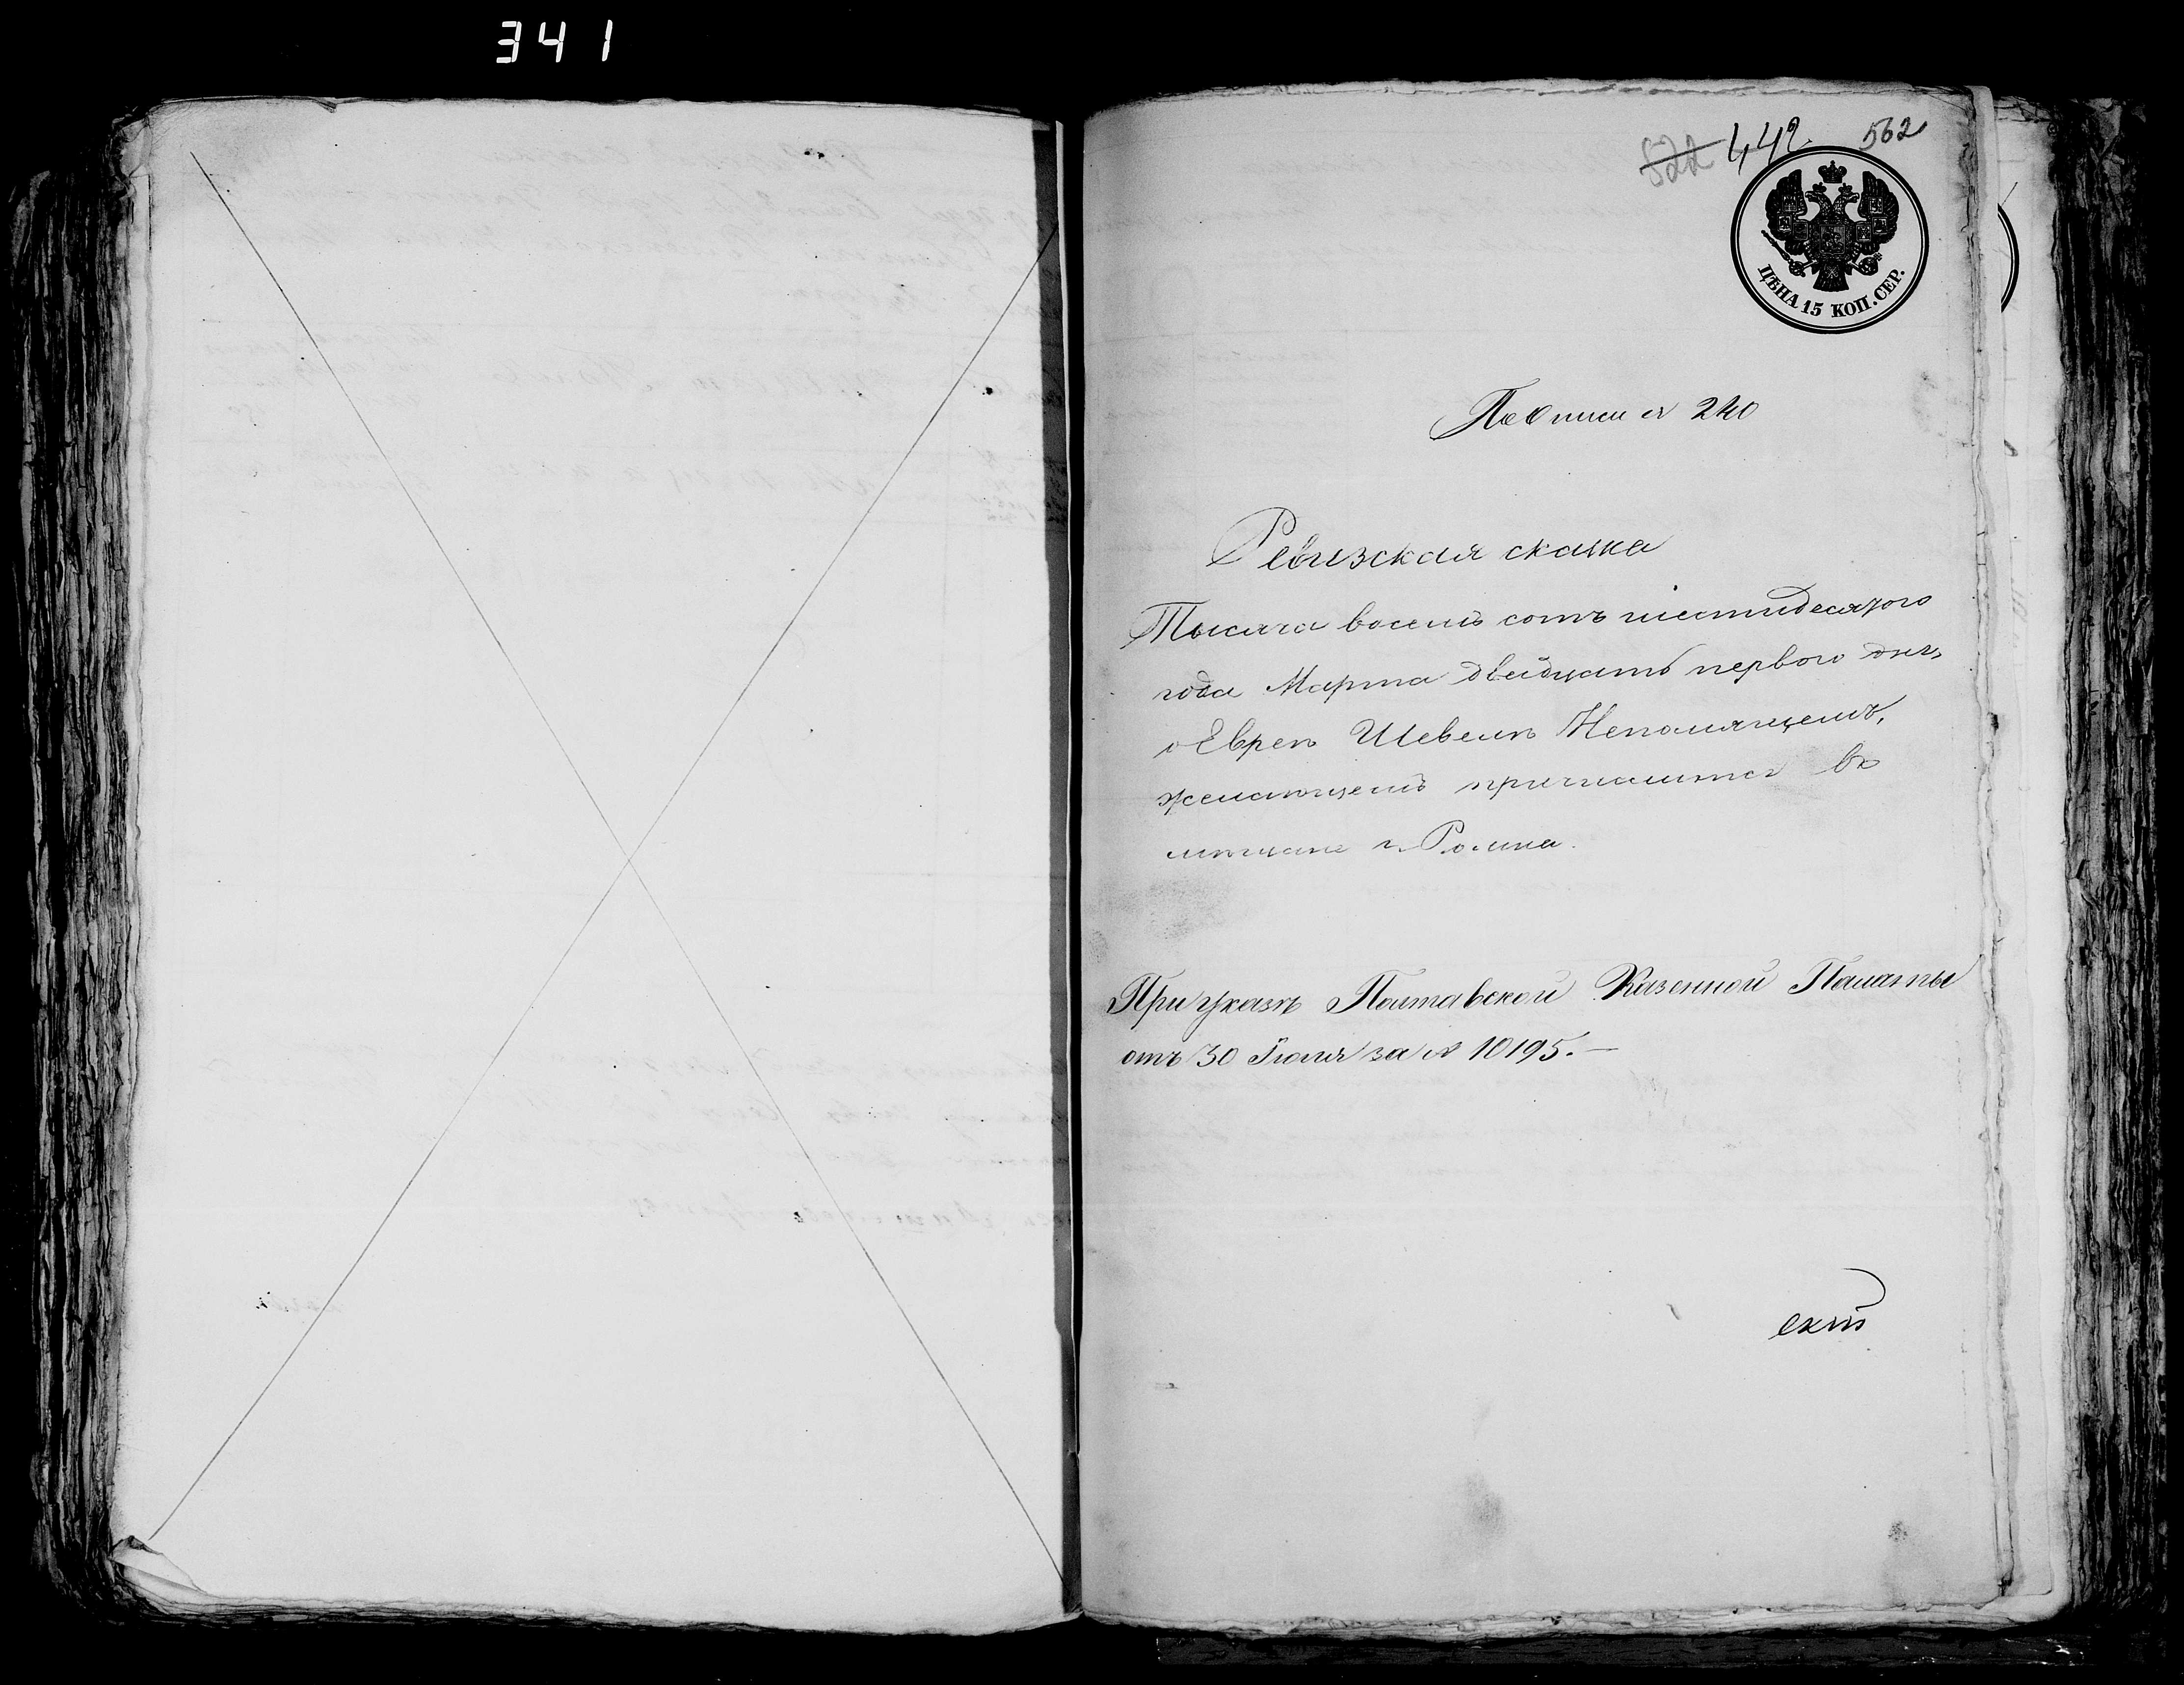 341
522 442. 562
ЦѢНА 15 КОП. СЕР.
По Описи № 240
Ревизская сказка
Тысяча восемь сотъ шестидесятого
года Марта двадцать первого дня,
о Евреѣ Шевелѣ Непомнящемъ,
желающемъ причислится въ
мѣщане г. Ромна.
При указѣ Полтавской Казенной Палаты
отъ 30 Іюля за № 10195.—